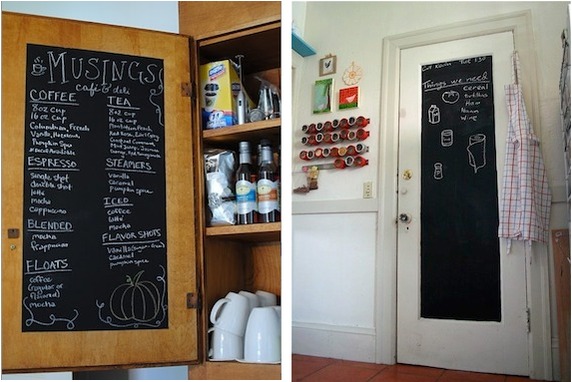 MUSINGS
café & deli
COFFEE
8oz cup
16 oz cup
Colombian, French
Vanilla, Hazelnut
Pumpkin Spice
ESPRESSO
single shot
double shot
latte
mocha
cappuccino
BLENDED
mocha
frappuccino
FLOATS
coffee
(regular or
flavored)
mocha
TEA
8oz cup
16 oz cup
STEAMERS
vanilla
caramel
pumpkin spice
ICED
coffee
latte
mocha
FLAVOR SHOTS
caramel
pumpkin spice
Things we need
cereal
tortillas
Ham
Naan
wine